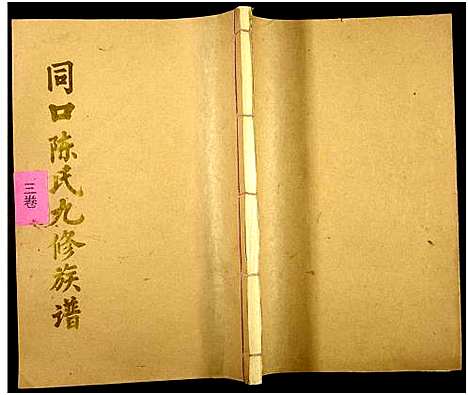 同口陈氏九修族谱
三卷